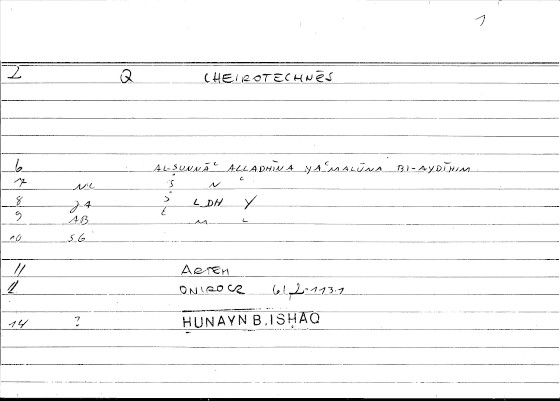 1
2 Q CHEIROTECHNĒS
6 AL-ṢUNNĀʿ ALLADHĪNA YAʿMALŪNA BI-AYDĪHIM
7 NL Ṣ N ʿ
8 JA LDH Y
9 AB M L
10 SG
11 ARTEM
ONIROCR 61,2-113.1
14 ? HUNAYN B. ISHAQ